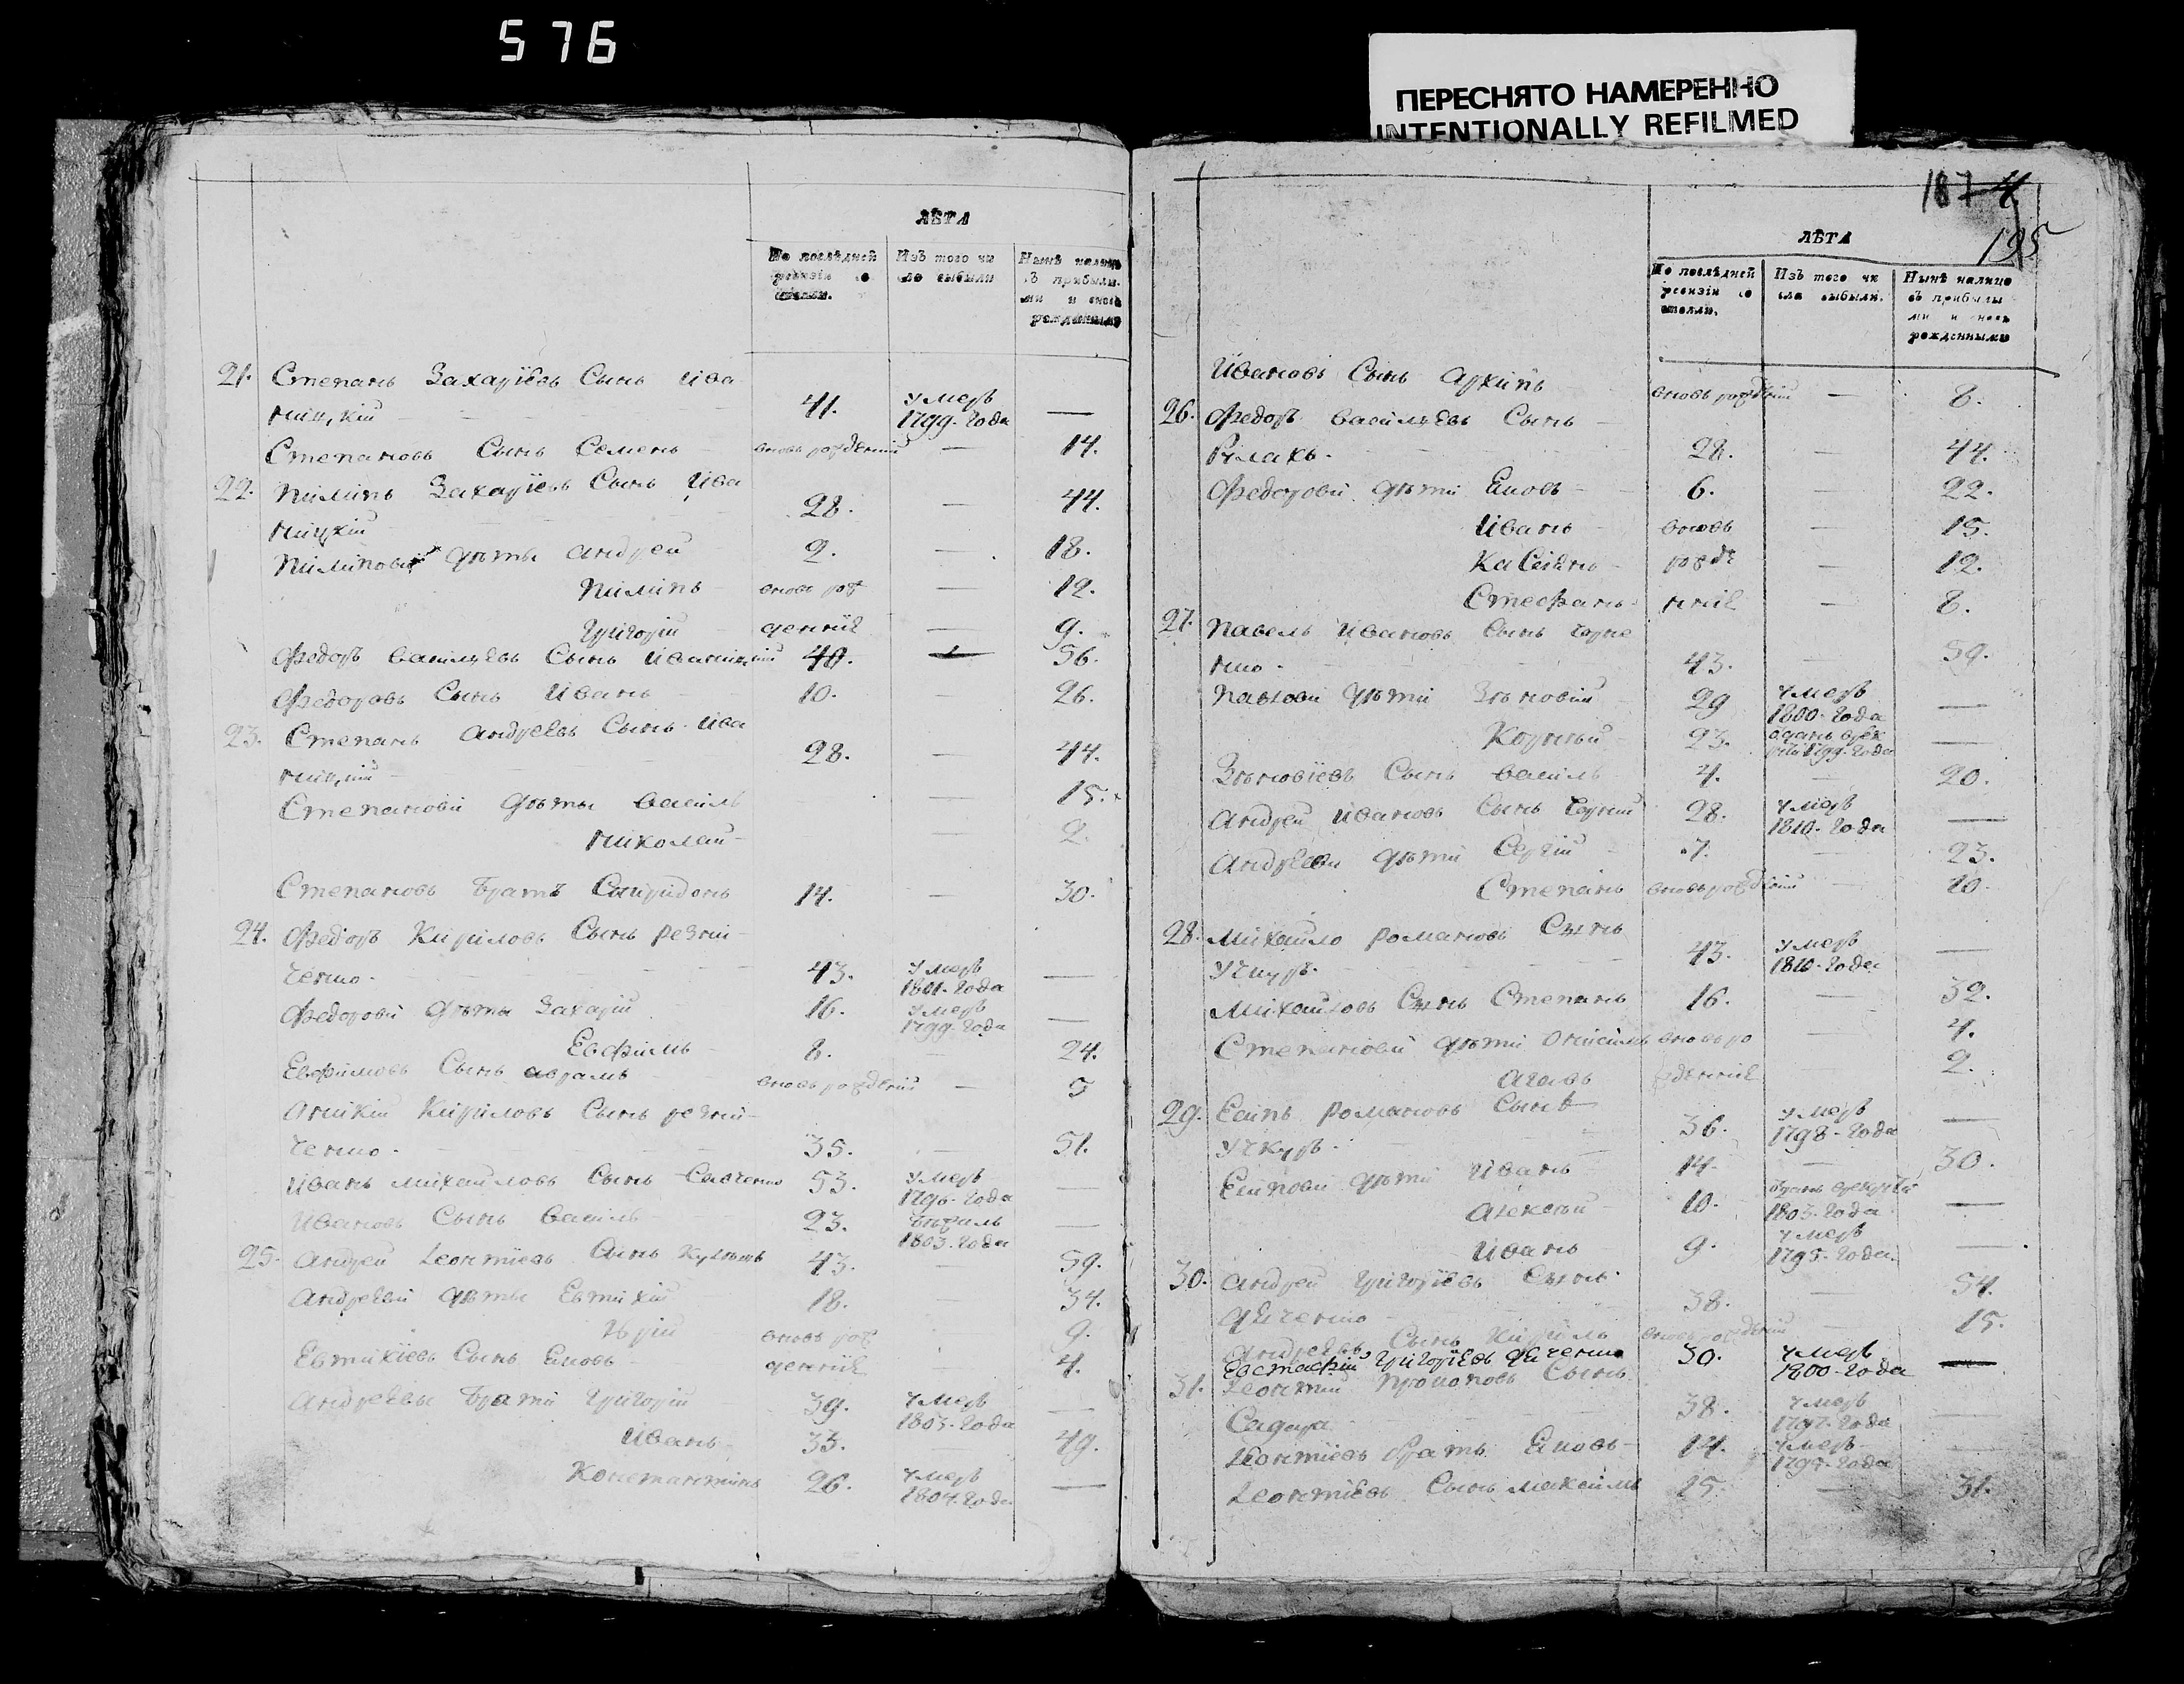 576
ПЕРЕСНЯТО НАМЕРЕННО
INTENTIONALLY REFILMED
ЛѢТА
По послѣдней ревизіи со стояли.
Изъ того чи сло выбыли
Нынѣ налицо съ прибылы ми и вновь рожденными
21. Степанъ Захаріевъ Сынъ Ива
ницкій 41. умеръ 1799. года —
Степановъ Сынъ Семенъ вновь рожденній — 14.
22. Пилипъ Захаріевъ Сынъ Ива
ницкій 28. — 44.
Пилипови дѣты Андрей 2. — 18.
Пилипъ вновь рож — 12.
Григорій денніе — 9.
Федоръ Васильевъ Сынъ Иваницкій 40. — 56.
Федоровъ Сынъ Иванъ 10. — 26.
23. Степанъ Андреевъ Сынъ Ива
ницкій 28. — 44.
Степанови дѣты Василь — 15.
Николай — 2.
Степановъ братъ Спиридонъ 14. — 30.
24. Федоръ Кириловъ Сынъ Резни
ченко 43. умеръ 1801. года —
Федорови дѣты Захарій 16. умеръ 1799. года —
Евфимъ 8. — 24.
Евфимовъ Сынъ Аврамъ вновь рожденій — 5
Аникій Кириловъ Сынъ Резни
ченко 35. — 51.
Иванъ Михайловъ Сынъ Савченко 53. умеръ 1796. года —
Ивановъ Сынъ Василь 23. бѣжалъ 1803. года —
25. Андрей Леонтіевъ Сынъ 43. — 59.
Андрееви дѣты Евтихій 18. — 34.
Юрій вновь рож — 9.
Евтихіевъ Сынъ Яковъ денніе 4.
Андреевы брати Григорій 39. умеръ 1803. года —
Иванъ 33. — 49.
Константинъ 26. умеръ 1804. года —
187
195
ЛѢТА
По послѣдней ревизіи со стояли.
Изъ того чи сла выбыли.
Нынѣ налицо съ прибылы ми и новь рожденными
Ивановъ Сынъ Архипъ вновь рожденій — 8.
26. Федоръ Васильевъ Сынъ
28. — 44.
Федорови дѣти Яковъ 6. — 22.
Иванъ вновь — 15.
Касіянъ рожде — 12.
Стефанъ нніе — 8.
27. Павелъ Ивановъ Сынъ Черне
нко 43. — 59.
Павлови дѣти Зѣновій 29 умеръ 1800. года —
Корнѣй 23. 1799. года —
Зѣновіевъ Сынъ Василь 4. — 20.
Андрей Ивановъ Сынъ Черній 28. умеръ 1810. года —
Андрееви дѣти Сергій 7. — 23.
Степанъ вновь рожденій — 10.
28. Михайло Романовъ Сынъ
Учкуръ 43. умеръ 1810. года —
Михайловъ Сынъ Степанъ 16. — 32.
Степанови дѣти Онисимъ вновь ро — 4.
жденніе 2.
29. Есипъ Романовъ Сынъ
Учкуръ 36. умеръ 1798. года —
Есипови дѣти Иванъ 14. — 30.
Алексѣй 10. 1803. года —
Иванъ 9. умеръ 1795. года —
30. Андрей Григоріевъ Сынъ
38. — 54.
Андреевъ Сынъ Кирилъ вновь рожденій — 15.
Евстафій Григоріевъ 30. умеръ 1800. года —
31. Леонтій Прокоповъ Сынъ
38. умеръ 1797. года —
Леонтіевъ братъ Яковъ 14. умеръ —
Леонтіевъ Сынъ Максимъ 15. — 31.